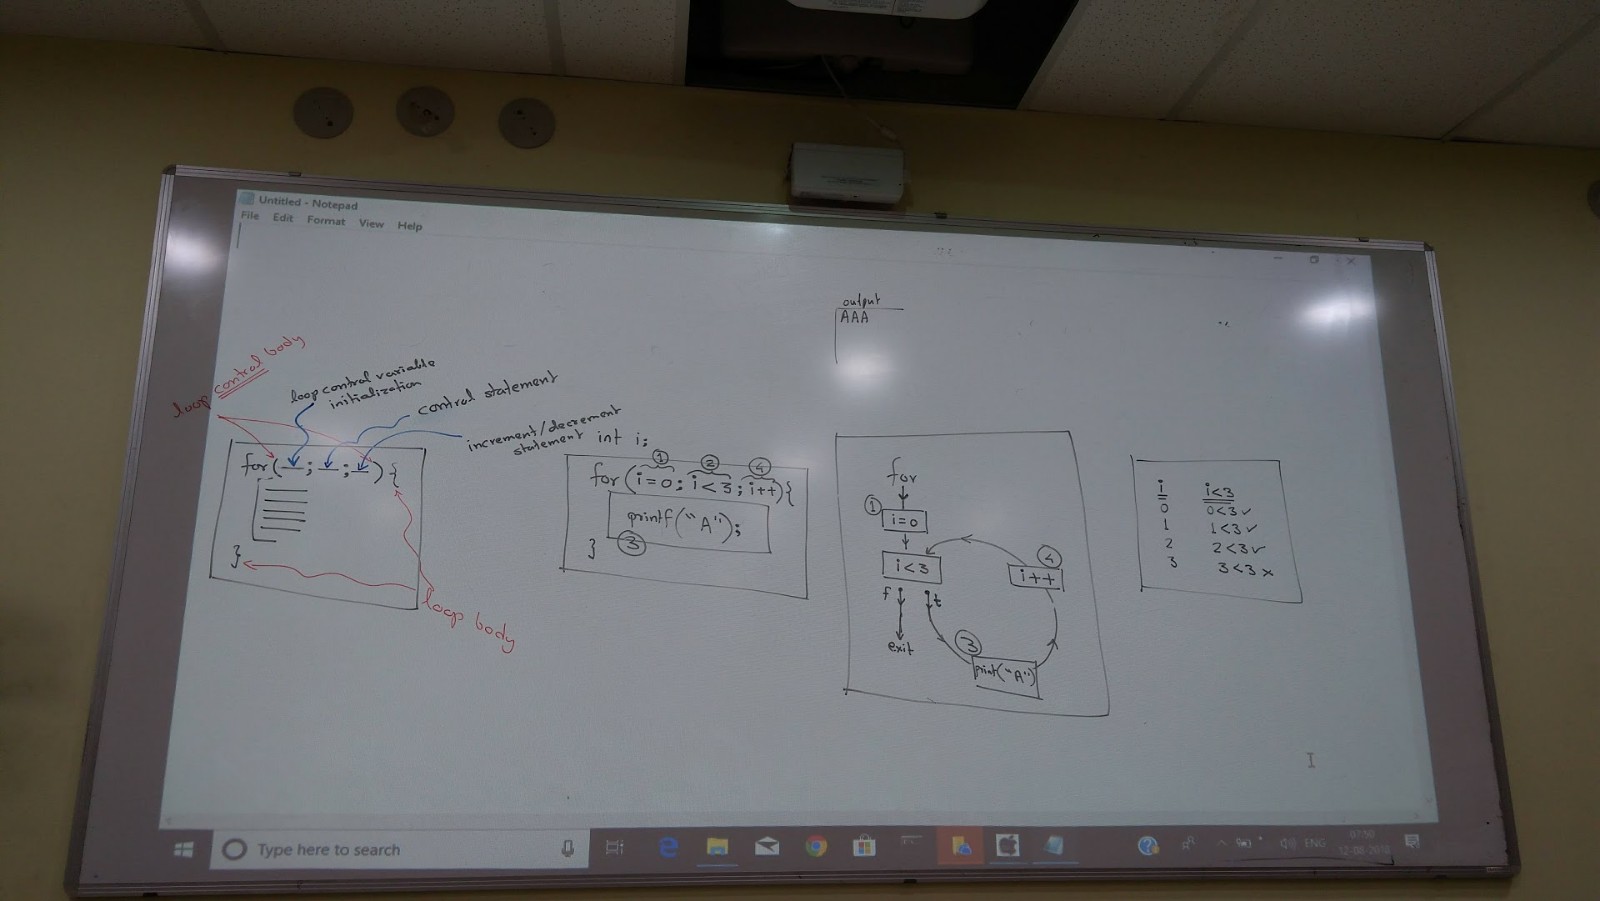 Untitled - Notepad
File Edit Format View Help
output
AAA
loop control body
loop control variable
initialization
control statement
increment/decrement
statement
for( ; ; ) {
}
loop body
int i;
1 2 4
for (i=0; i<3; i++) {
printf("A");
3
}
for
1
i=0
i<3
f t
exit
3
print("A")
4
i++
i i<3
0 0<3 ✓
1 1<3 ✓
2 2<3 ✓
3 3<3 ×
Type here to search
ENG
07:50
12-08-2018